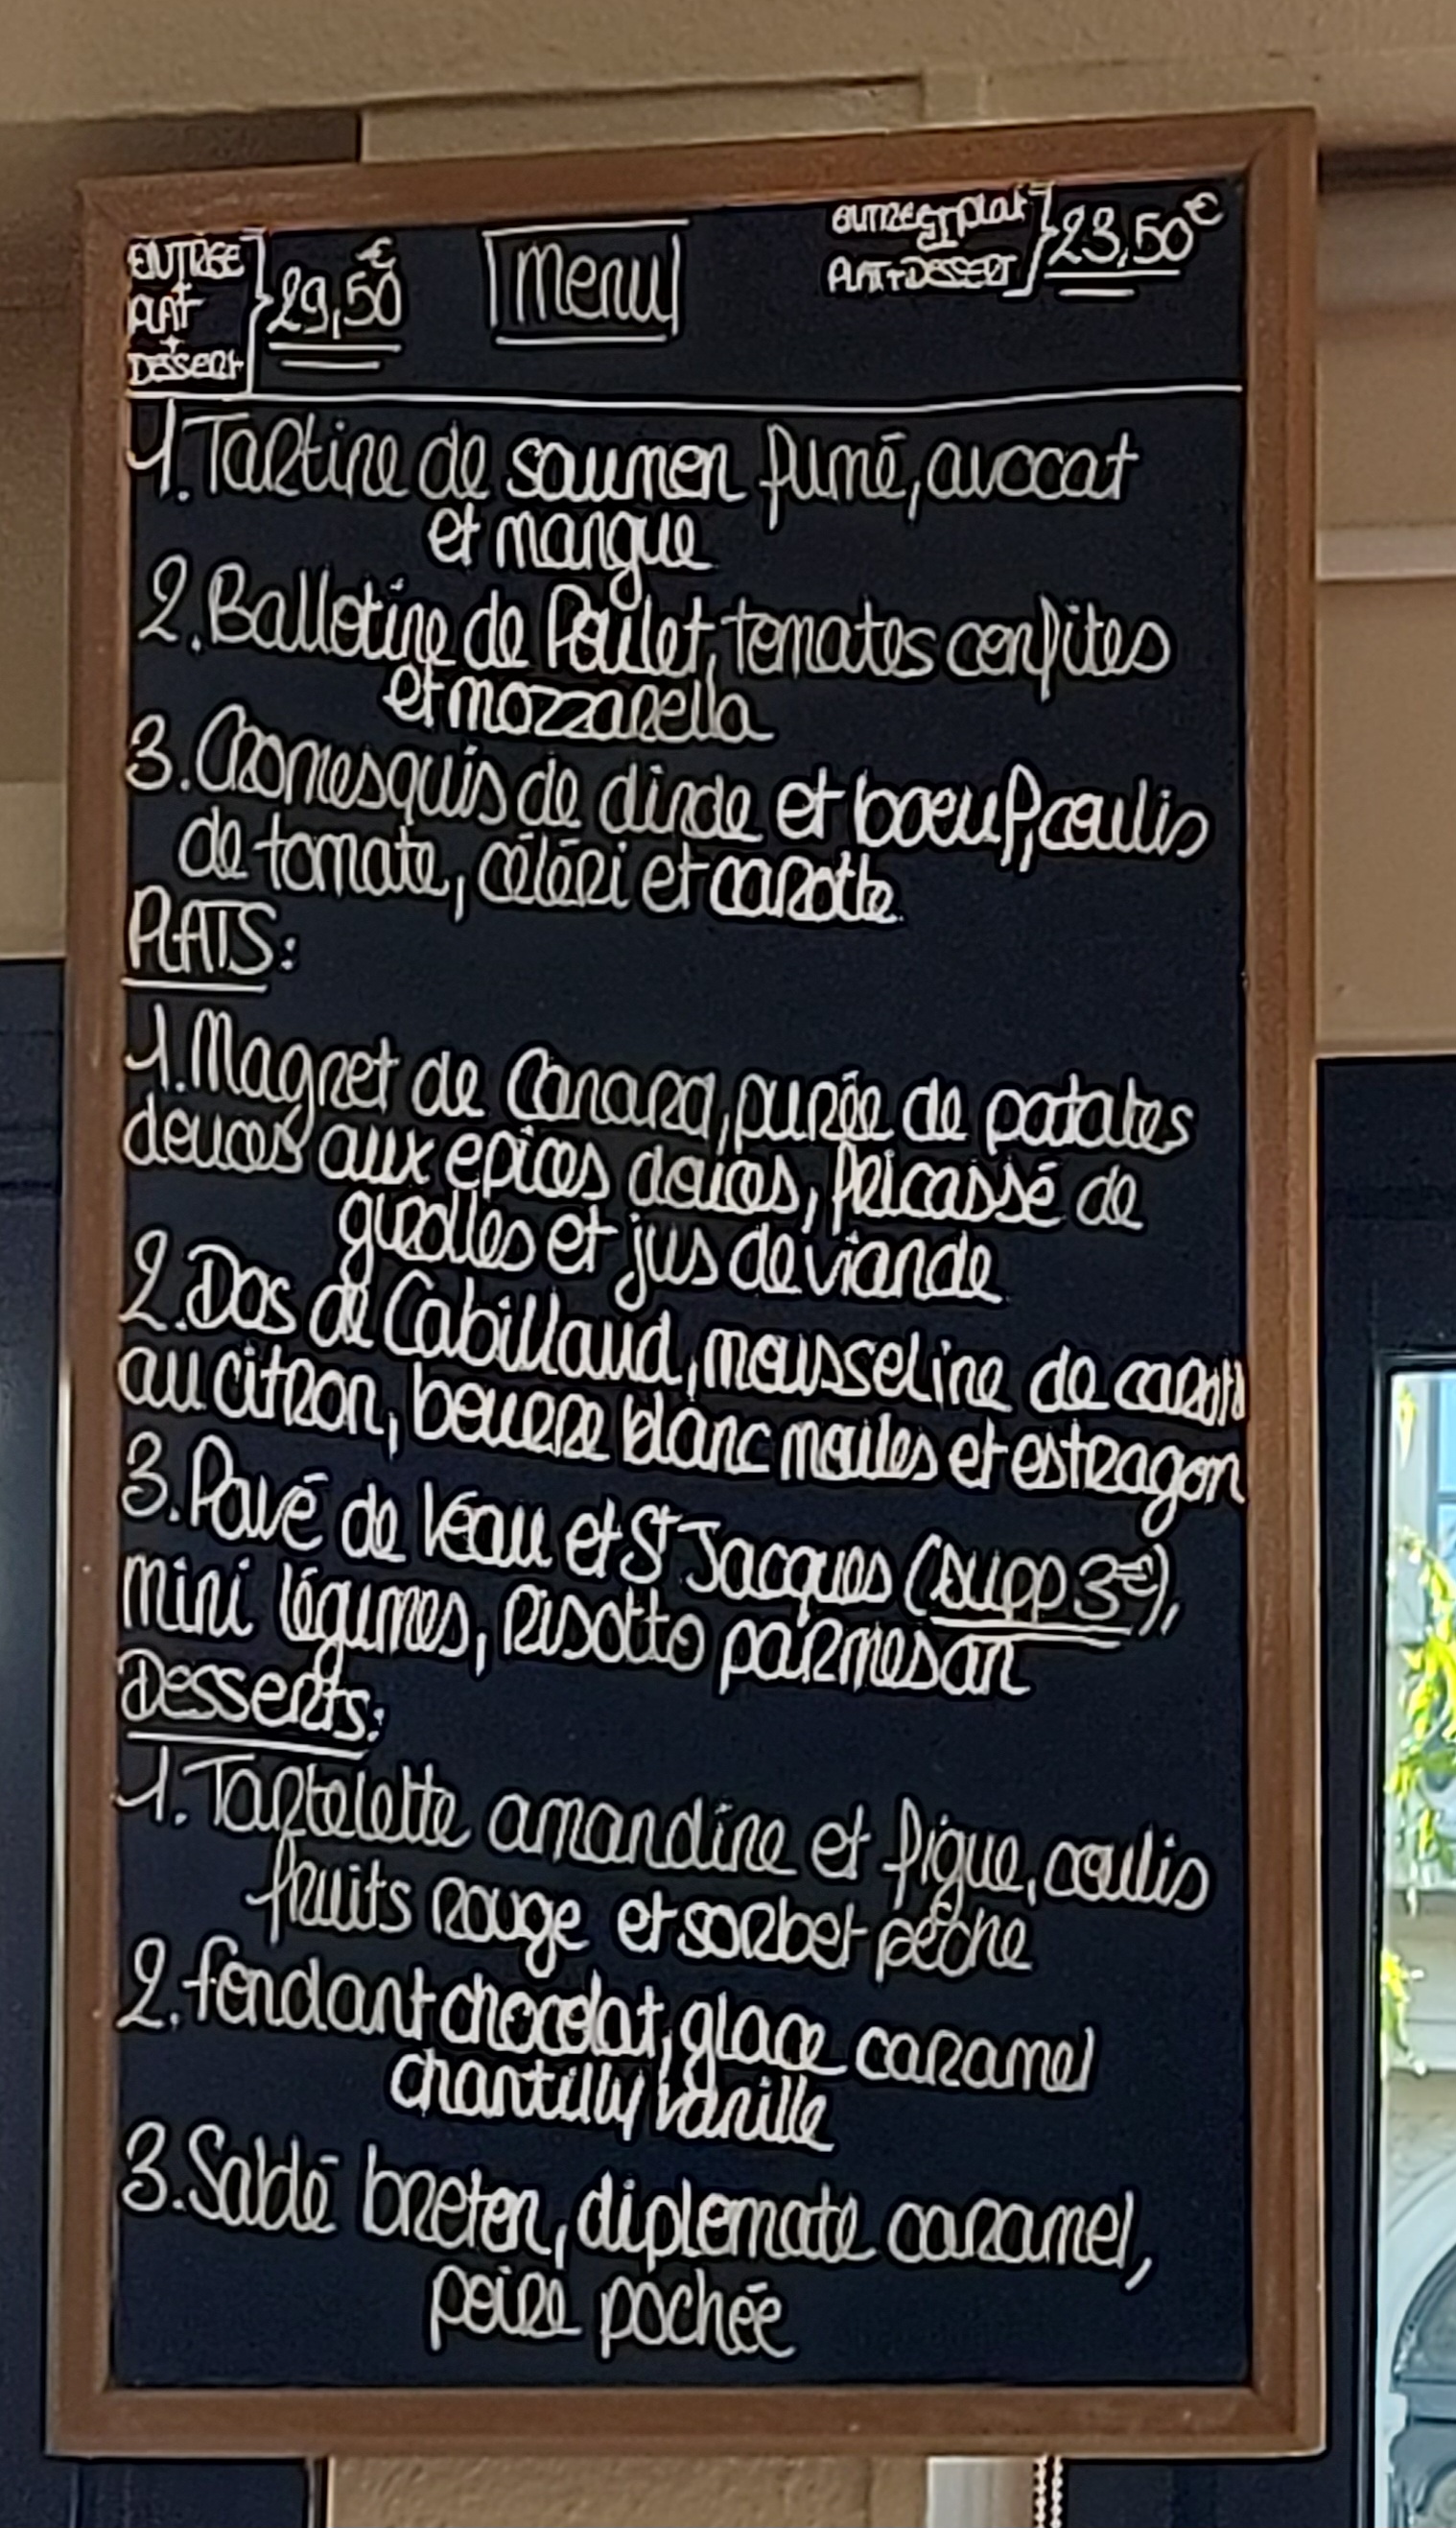 ENTRÉE
PLAT
+
DESSERT
29,50€
Menu
ENTRÉE ET plat
PLAT+DESSERT
23,50€
1. Tartine de saumon fumé, avocat
et mangue
2. Ballotine de Poulet, tomates confites
et mozzarella
3. Cromesquis de dinde et boeuf, coulis
de tomate, céléri et carotte
PLATS:
1. Magret de Canard, purée de patates
douces aux epices douces, fricassé de
girolles et jus de viande
2. Dos de Cabillaud, mousseline de
au citron, beurre blanc moules et estragon
3. Pavé de Veau et St Jacques (supp 3€),
mini légumes, Risotto parmesan
Desserts:
1. Tartelette amandine et figue, coulis
fruits rouge et sorbet pêche
2. fondant chocolat, glace caramel
chantilly vanille
3. Sablé breton, diplomate caramel,
poire pochée